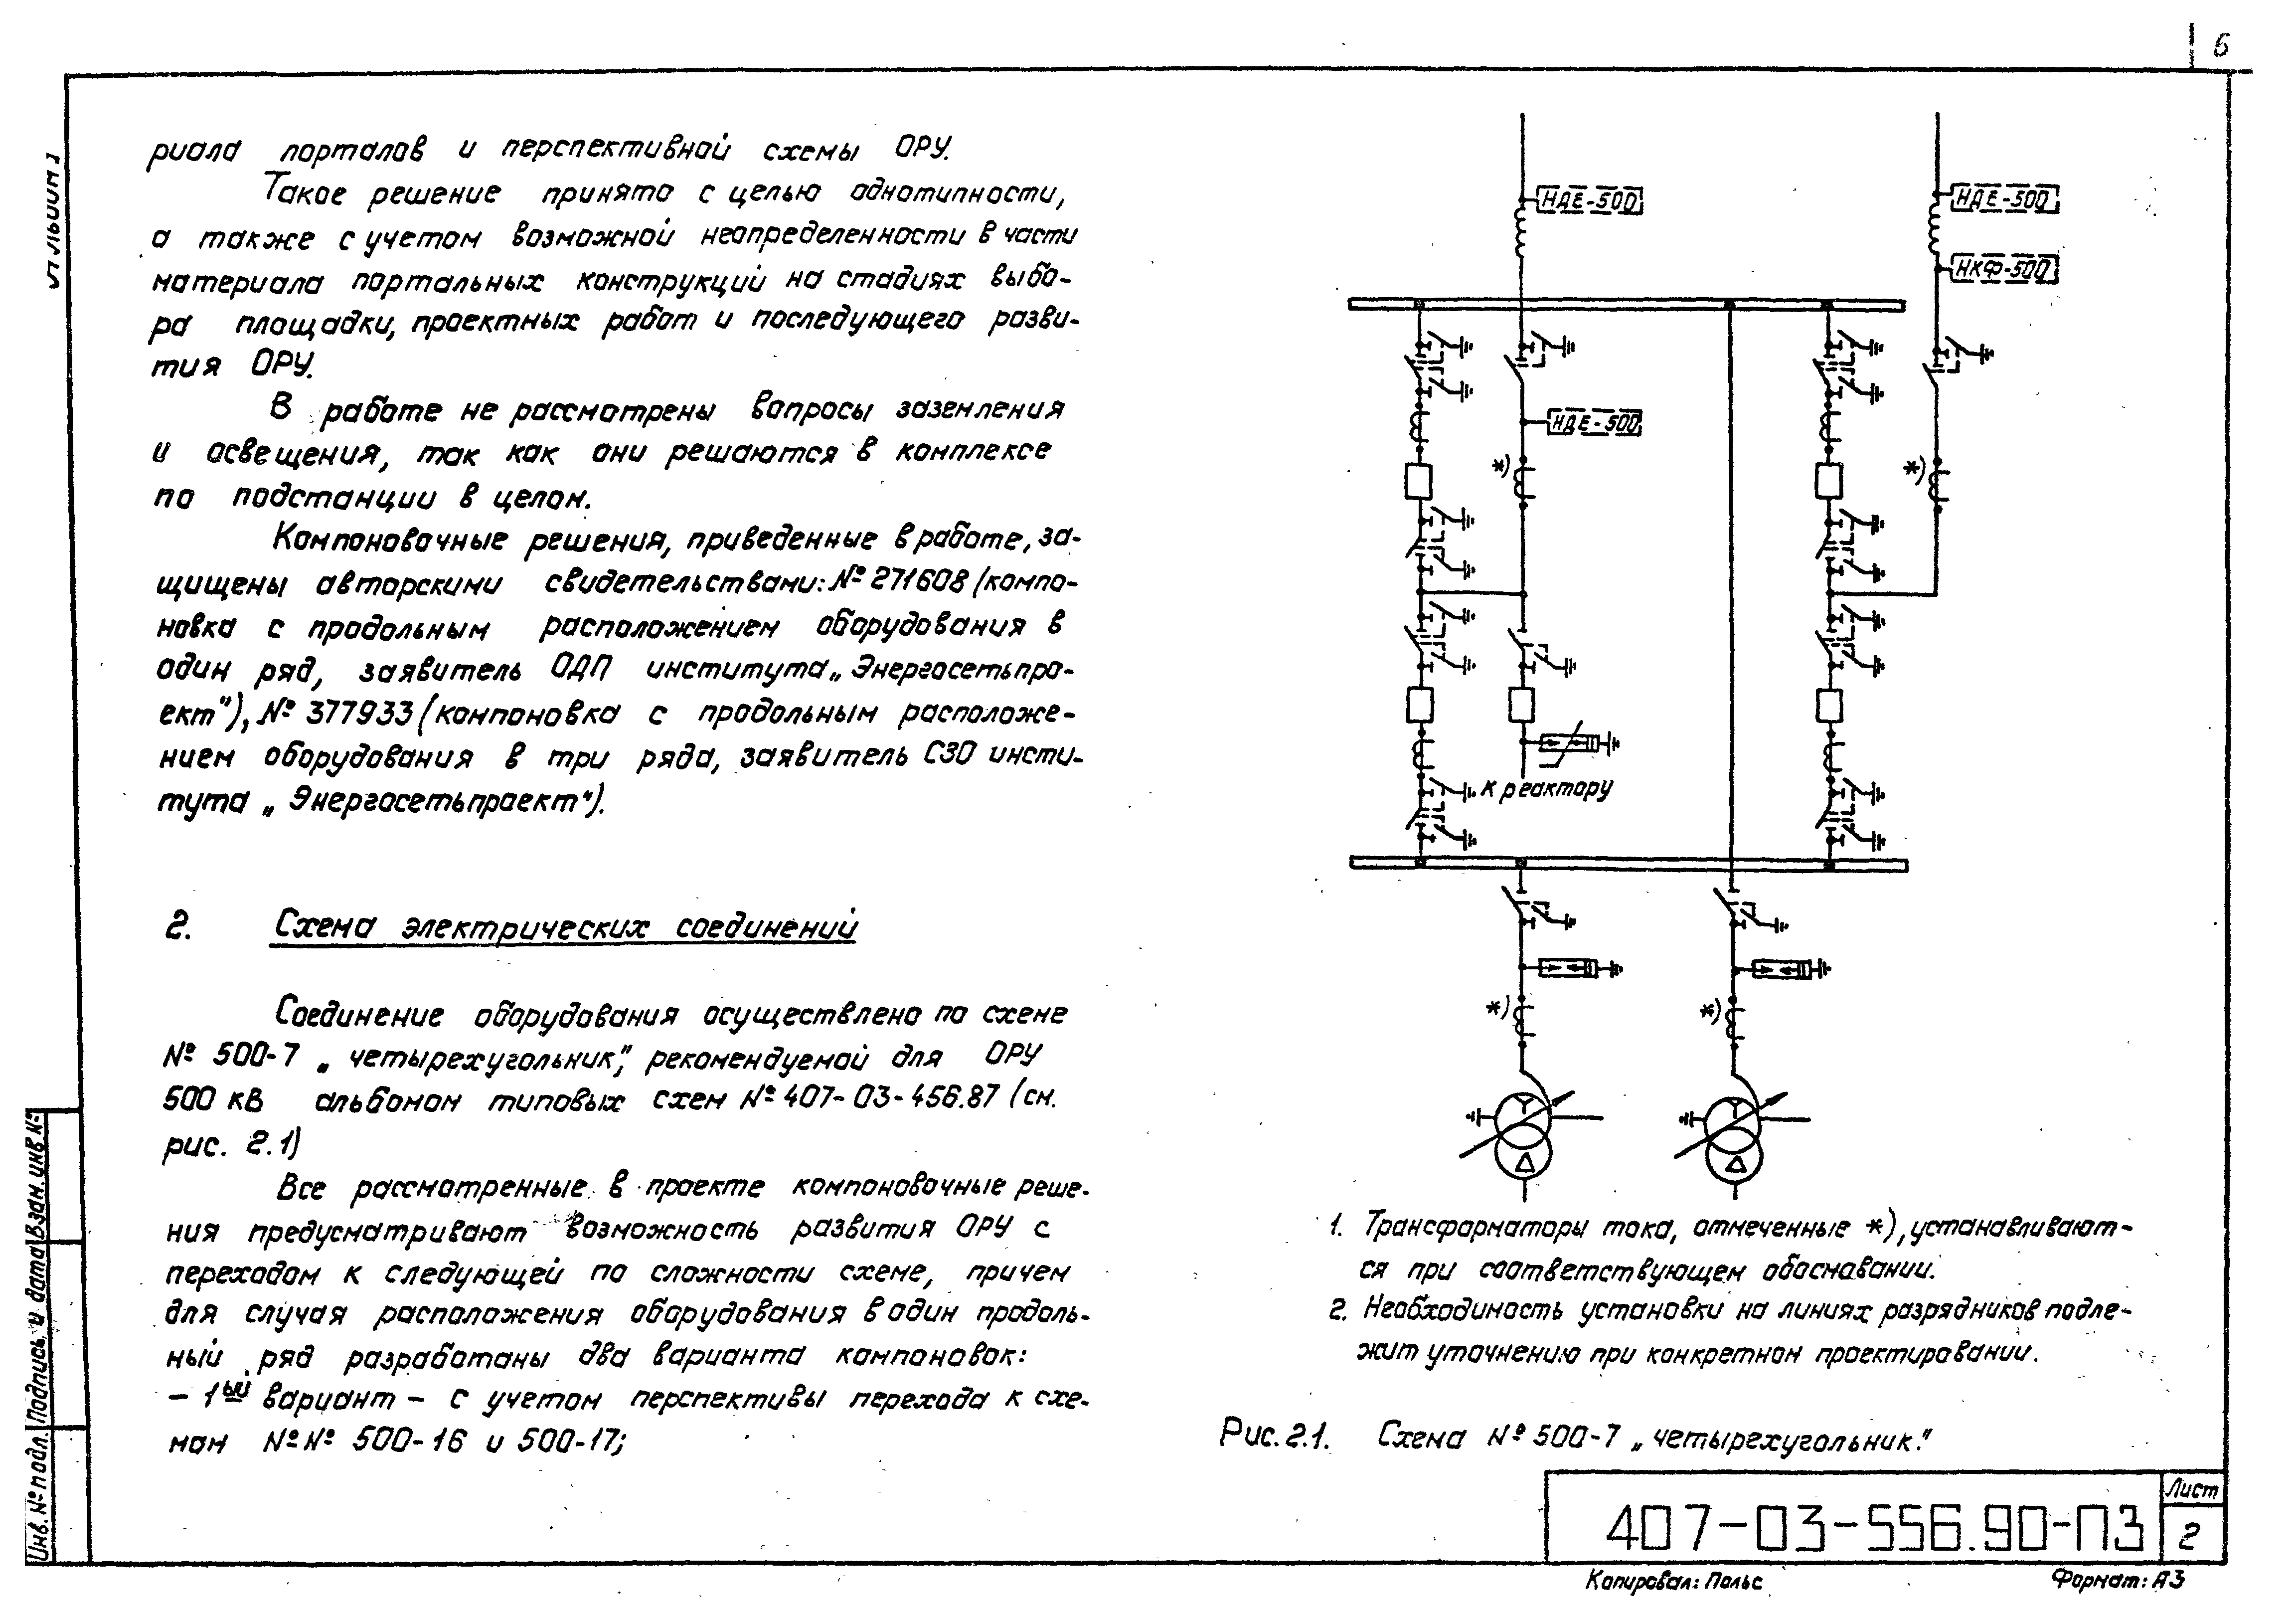 6
Альбом 1
риала порталов и перспективной схемы ОРУ.
Такое решение принято с целью однотипности,
а также с учетом возможной неопределенности в части
материала портальных конструкций на стадиях выбо-
ра площадки, проектных работ и последующего разви-
тия ОРУ.
В работе не рассмотрены вопросы заземления
и освещения, так как они решаются в комплексе
по подстанции в целом.
Компоновочные решения, приведенные в работе, за-
щищены авторскими свидетельствами: № 271608 (компо-
новка с продольным расположением оборудования в
один ряд, заявитель ОДП института „Энергосетьпро-
ект"), № 377933 (компоновка с продольным расположе-
нием оборудования в три ряда, заявитель СЗО инсти-
тута „Энергосетьпроект").
2. Схема электрических соединений
Соединение оборудования осуществлено по схеме
№ 500-7 „четырехугольник", рекомендуемой для ОРУ
500 кВ альбомом типовых схем № 407-03-456.87 (см.
рис. 2.1)
Все рассмотренные в проекте компоновочные реше-
ния предусматривают возможность развития ОРУ с
переходом к следующей по сложности схеме, причем
для случая расположения оборудования в один продоль-
ный ряд разработаны два варианта компоновок:
– 1ый вариант – с учетом перспективы перехода к схе-
мам №№ 500-16 и 500-17;
НДЕ-500
НДЕ-500
НКФ-500
НДЕ-500
*)
*)
к реактору
*)
*)
1. Трансформаторы тока, отмеченные *), устанавливают-
ся при соответствующем обосновании.
2. Необходимость установки на линиях разрядников подле-
жит уточнению при конкретном проектировании.
Рис. 2.1. Схема № 500-7 „четырехугольник."
407-03-556.90-ПЗ
Лист
2
Копировал: Польс
Формат: А3
Инв. № подл.
Подпись и дата
Взам. инв. №